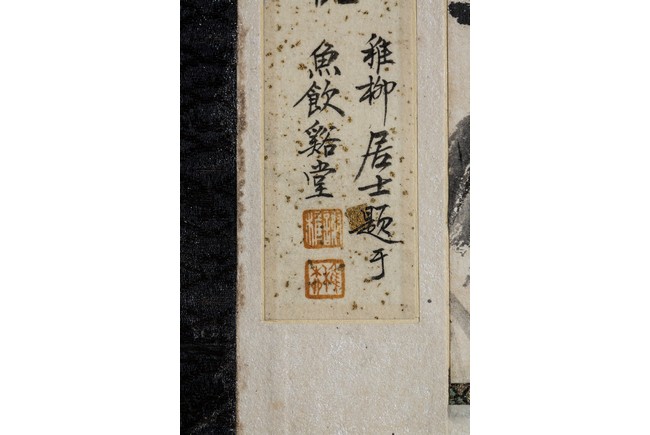 稚柳居士題于
魚飲谿堂